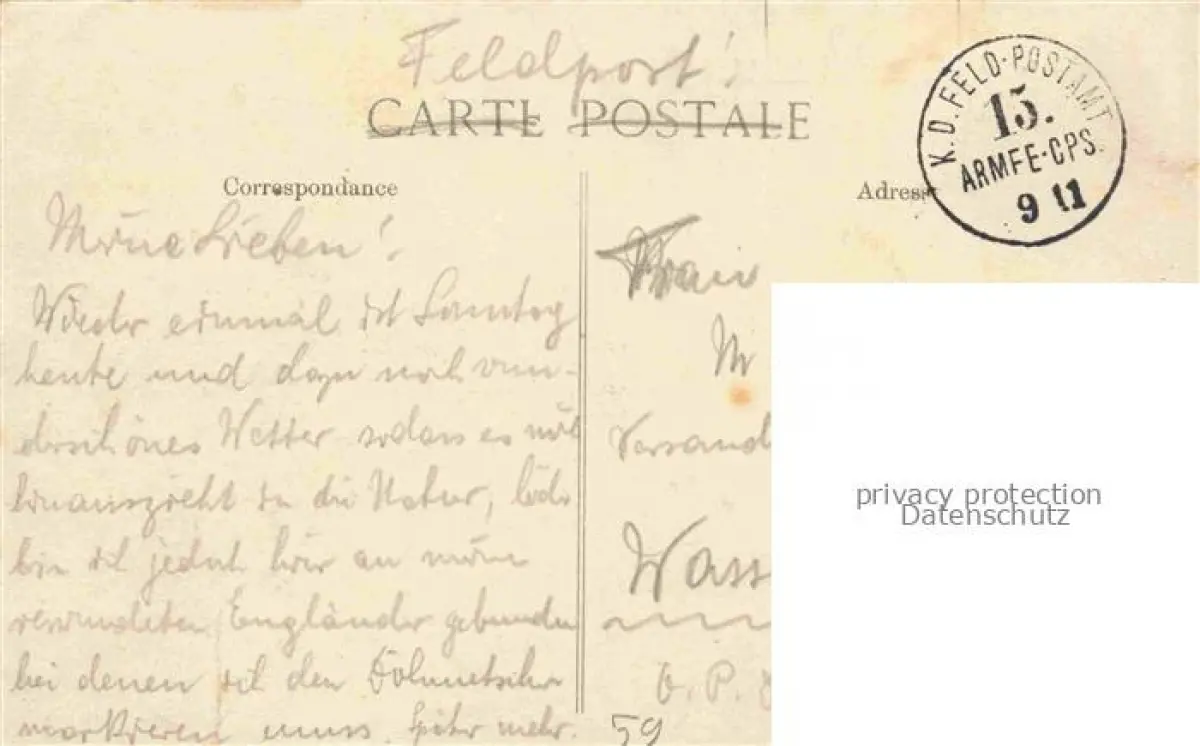 Feldpost!
CARTE POSTALE
K. D. FELD-POSTAMT
15.
ARMEE-CPS.
9 11
Correspondance
Adresse
Meine Lieben!
Wieder einmal ist Sonntag
heute und dazu noch wun-
derschönes Wetter sodass es mich
hinauszieht in die Natur, leider
bin ich jedoch hier an meine
verwundeten Engländer gebunden
bei denen ich den Dolmetscher
markieren muss. Später mehr.
Frau
M
Versand
Wass
O. P.
59
privacy protection
Datenschutz